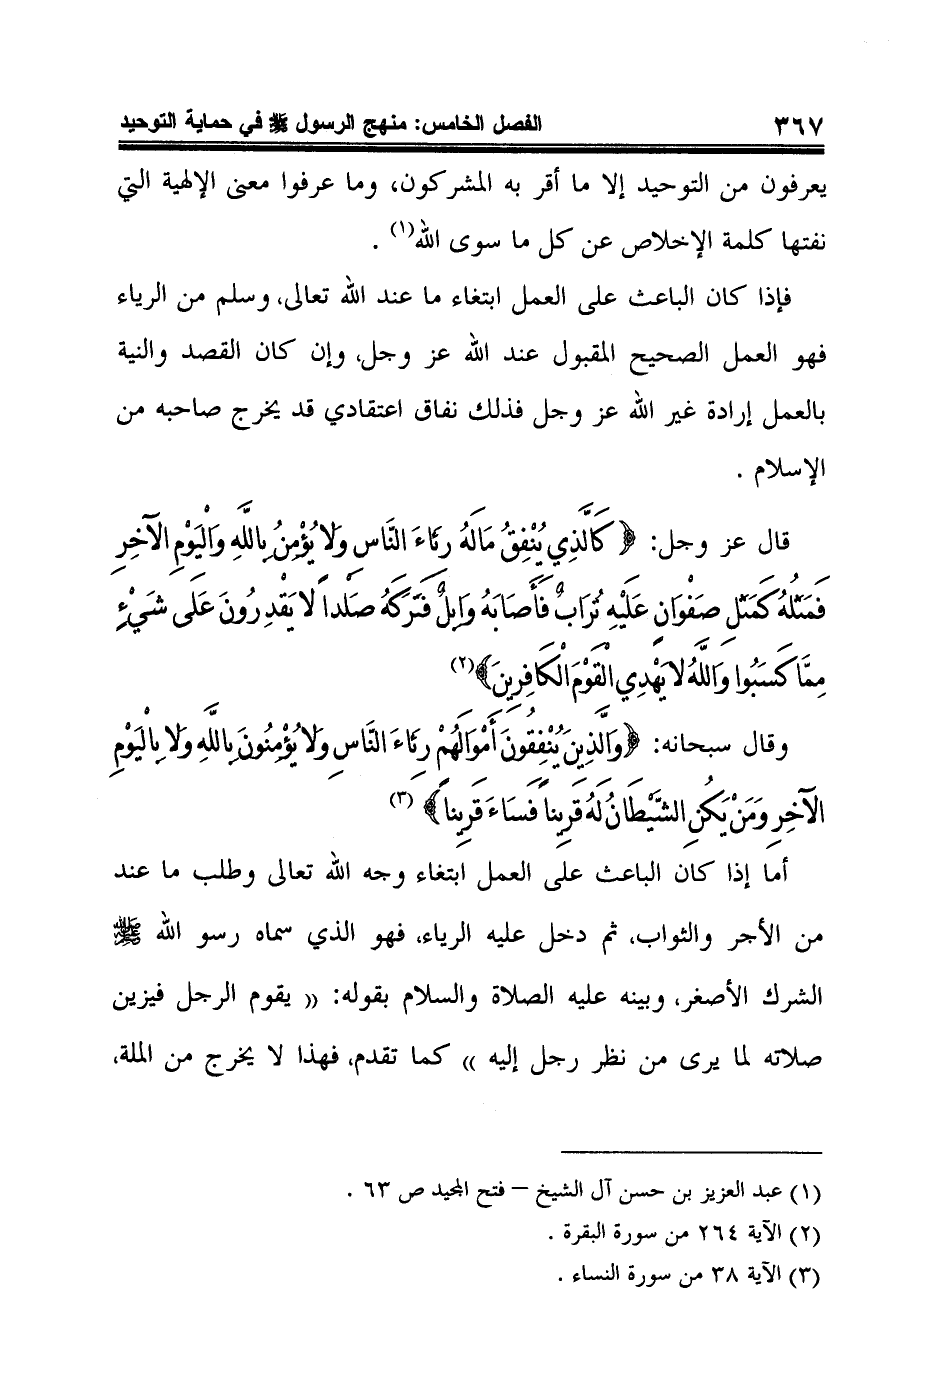 ٣٦٧ الفصل الخامس: منهج الرسول ﷺ في حماية التوحيد
يعرفون من التوحيد إلا ما أقر به المشركون، وما عرفوا معنى الإلهية التي
نفتها كلمة الإخلاص عن كل ما سوى الله(١) .
فإذا كان الباعث على العمل ابتغاء ما عند الله تعالى، وسلم من الرياء
فهو العمل الصحيح المقبول عند الله عز وجل، وإن كان القصد والنية
بالعمل إرادة غير الله عز وجل فذلك نفاق اعتقادي قد يخرج صاحبه من
الإسلام .
قال عز وجل: ﴿كَالَّذِي يُنْفِقُ مَالَهُ رِئَاءَ النَّاسِ وَلا يُؤْمِنُ بِاللَّهِ وَالْيَوْمِ الآخِرِ
فَمَثَلُهُ كَمَثَلِ صَفْوَانٍ عَلَيْهِ تُرَابٌ فَأَصَابَهُ وَابِلٌ فَتَرَكَهُ صَلْداً لا يَقْدِرُونَ عَلَى شَيْءٍ
مِمَّا كَسَبُوا وَاللَّهُ لا يَهْدِي الْقَوْمَ الْكَافِرِينَ﴾(٢)
وقال سبحانه: ﴿وَالَّذِينَ يُنْفِقُونَ أَمْوَالَهُمْ رِئَاءَ النَّاسِ وَلا يُؤْمِنُونَ بِاللَّهِ وَلا بِالْيَوْمِ
الآخِرِ وَمَنْ يَكُنِ الشَّيْطَانُ لَهُ قَرِيناً فَسَاءَ قَرِيناً﴾(٣)
أما إذا كان الباعث على العمل ابتغاء وجه الله تعالى وطلب ما عند
من الأجر والثواب، ثم دخل عليه الرياء، فهو الذي سماه رسو الله ﷺ
الشرك الأصغر، وبينه عليه الصلاة والسلام بقوله: (( يقوم الرجل فيزين
صلاته لما يرى من نظر رجل إليه )) كما تقدم، فهذا لا يخرج من الملة،
(١) عبد العزيز بن حسن آل الشيخ – فتح المجيد ص ٦٣ .
(٢) الآية ٢٦٤ من سورة البقرة .
(٣) الآية ٣٨ من سورة النساء .